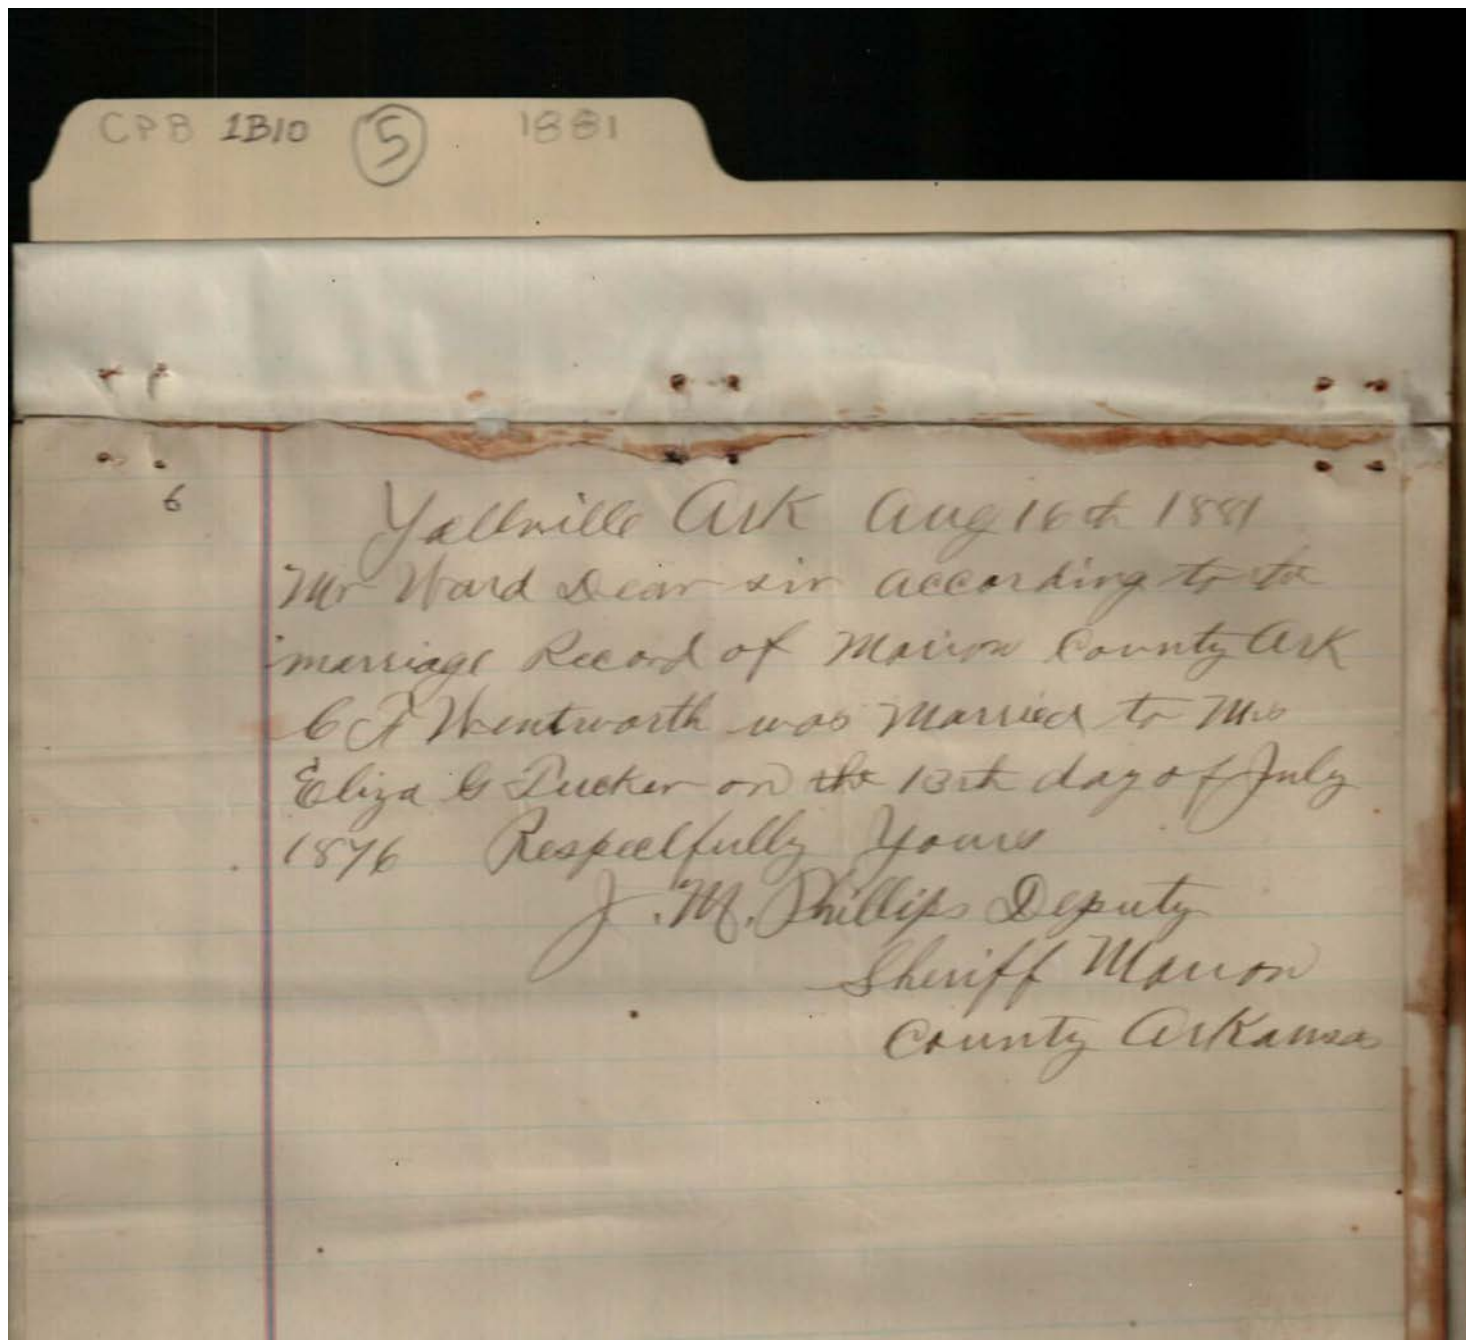 CPB 1B10 5 1881
6
Yallville Ark Aug 16th 1881
Mr Ward Dear sir according to the
marriage Record of Marion County Ark
C F Wentworth was Married to Mrs
Eliza G Tucker on the 13th day of July
1876 Respectfully Yours
J. M. Phillips Deputy
Sheriff Marion
County Arkansas